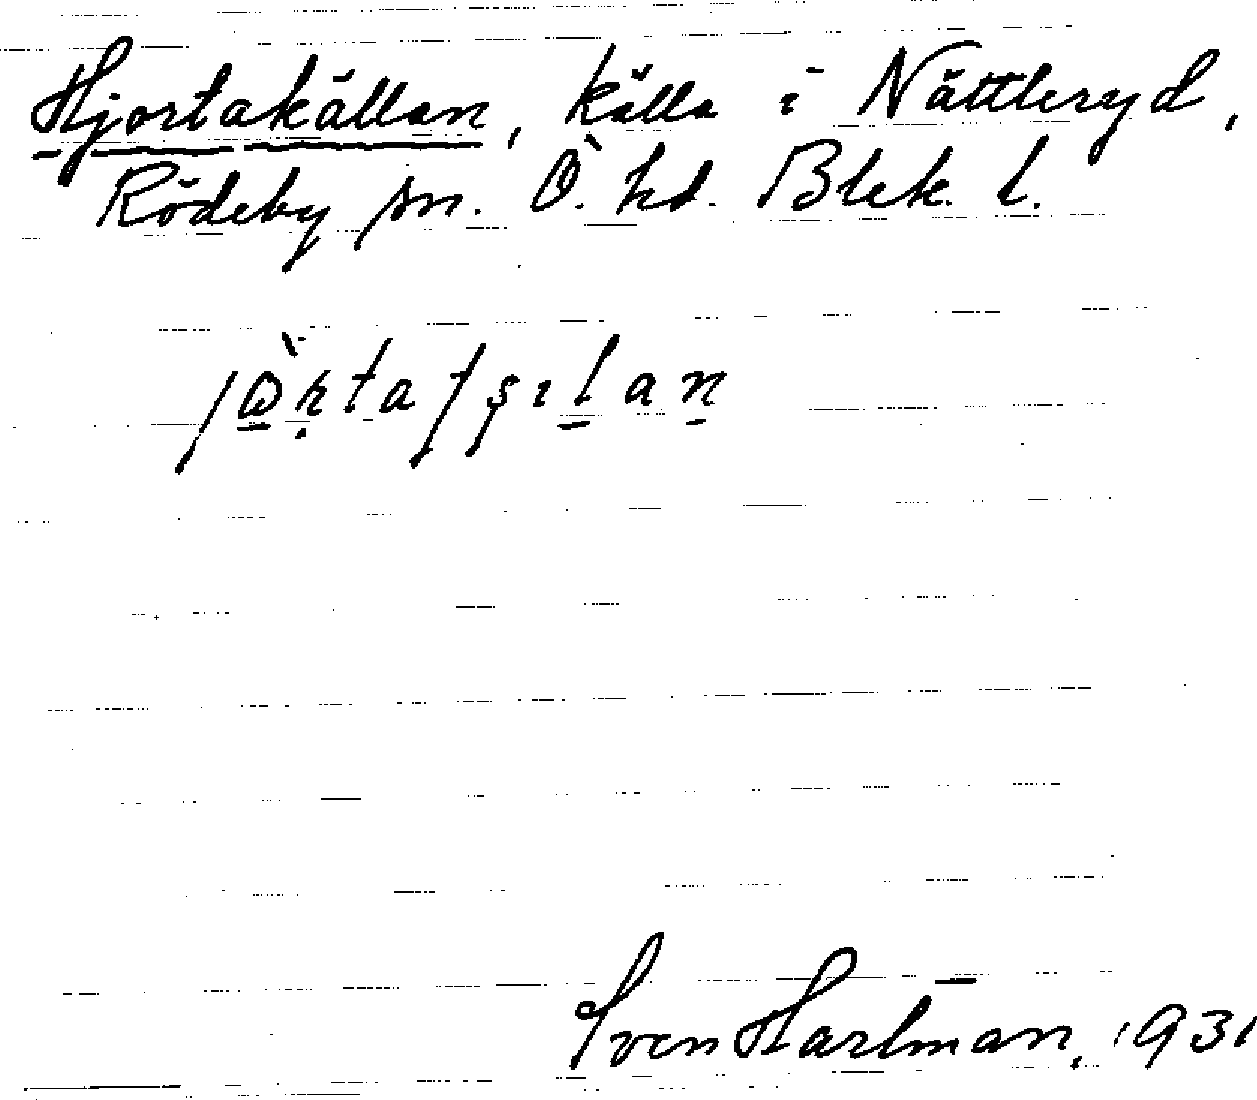 Hjortakällan, källa i Nättleryd,
Rödeby sn. Ö. hd. Blek. l.
Sven Hartman, 1931